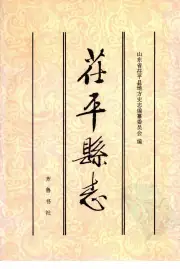 山东省茌平县地方史志编纂委员会 编
茌平縣志
齐鲁书社